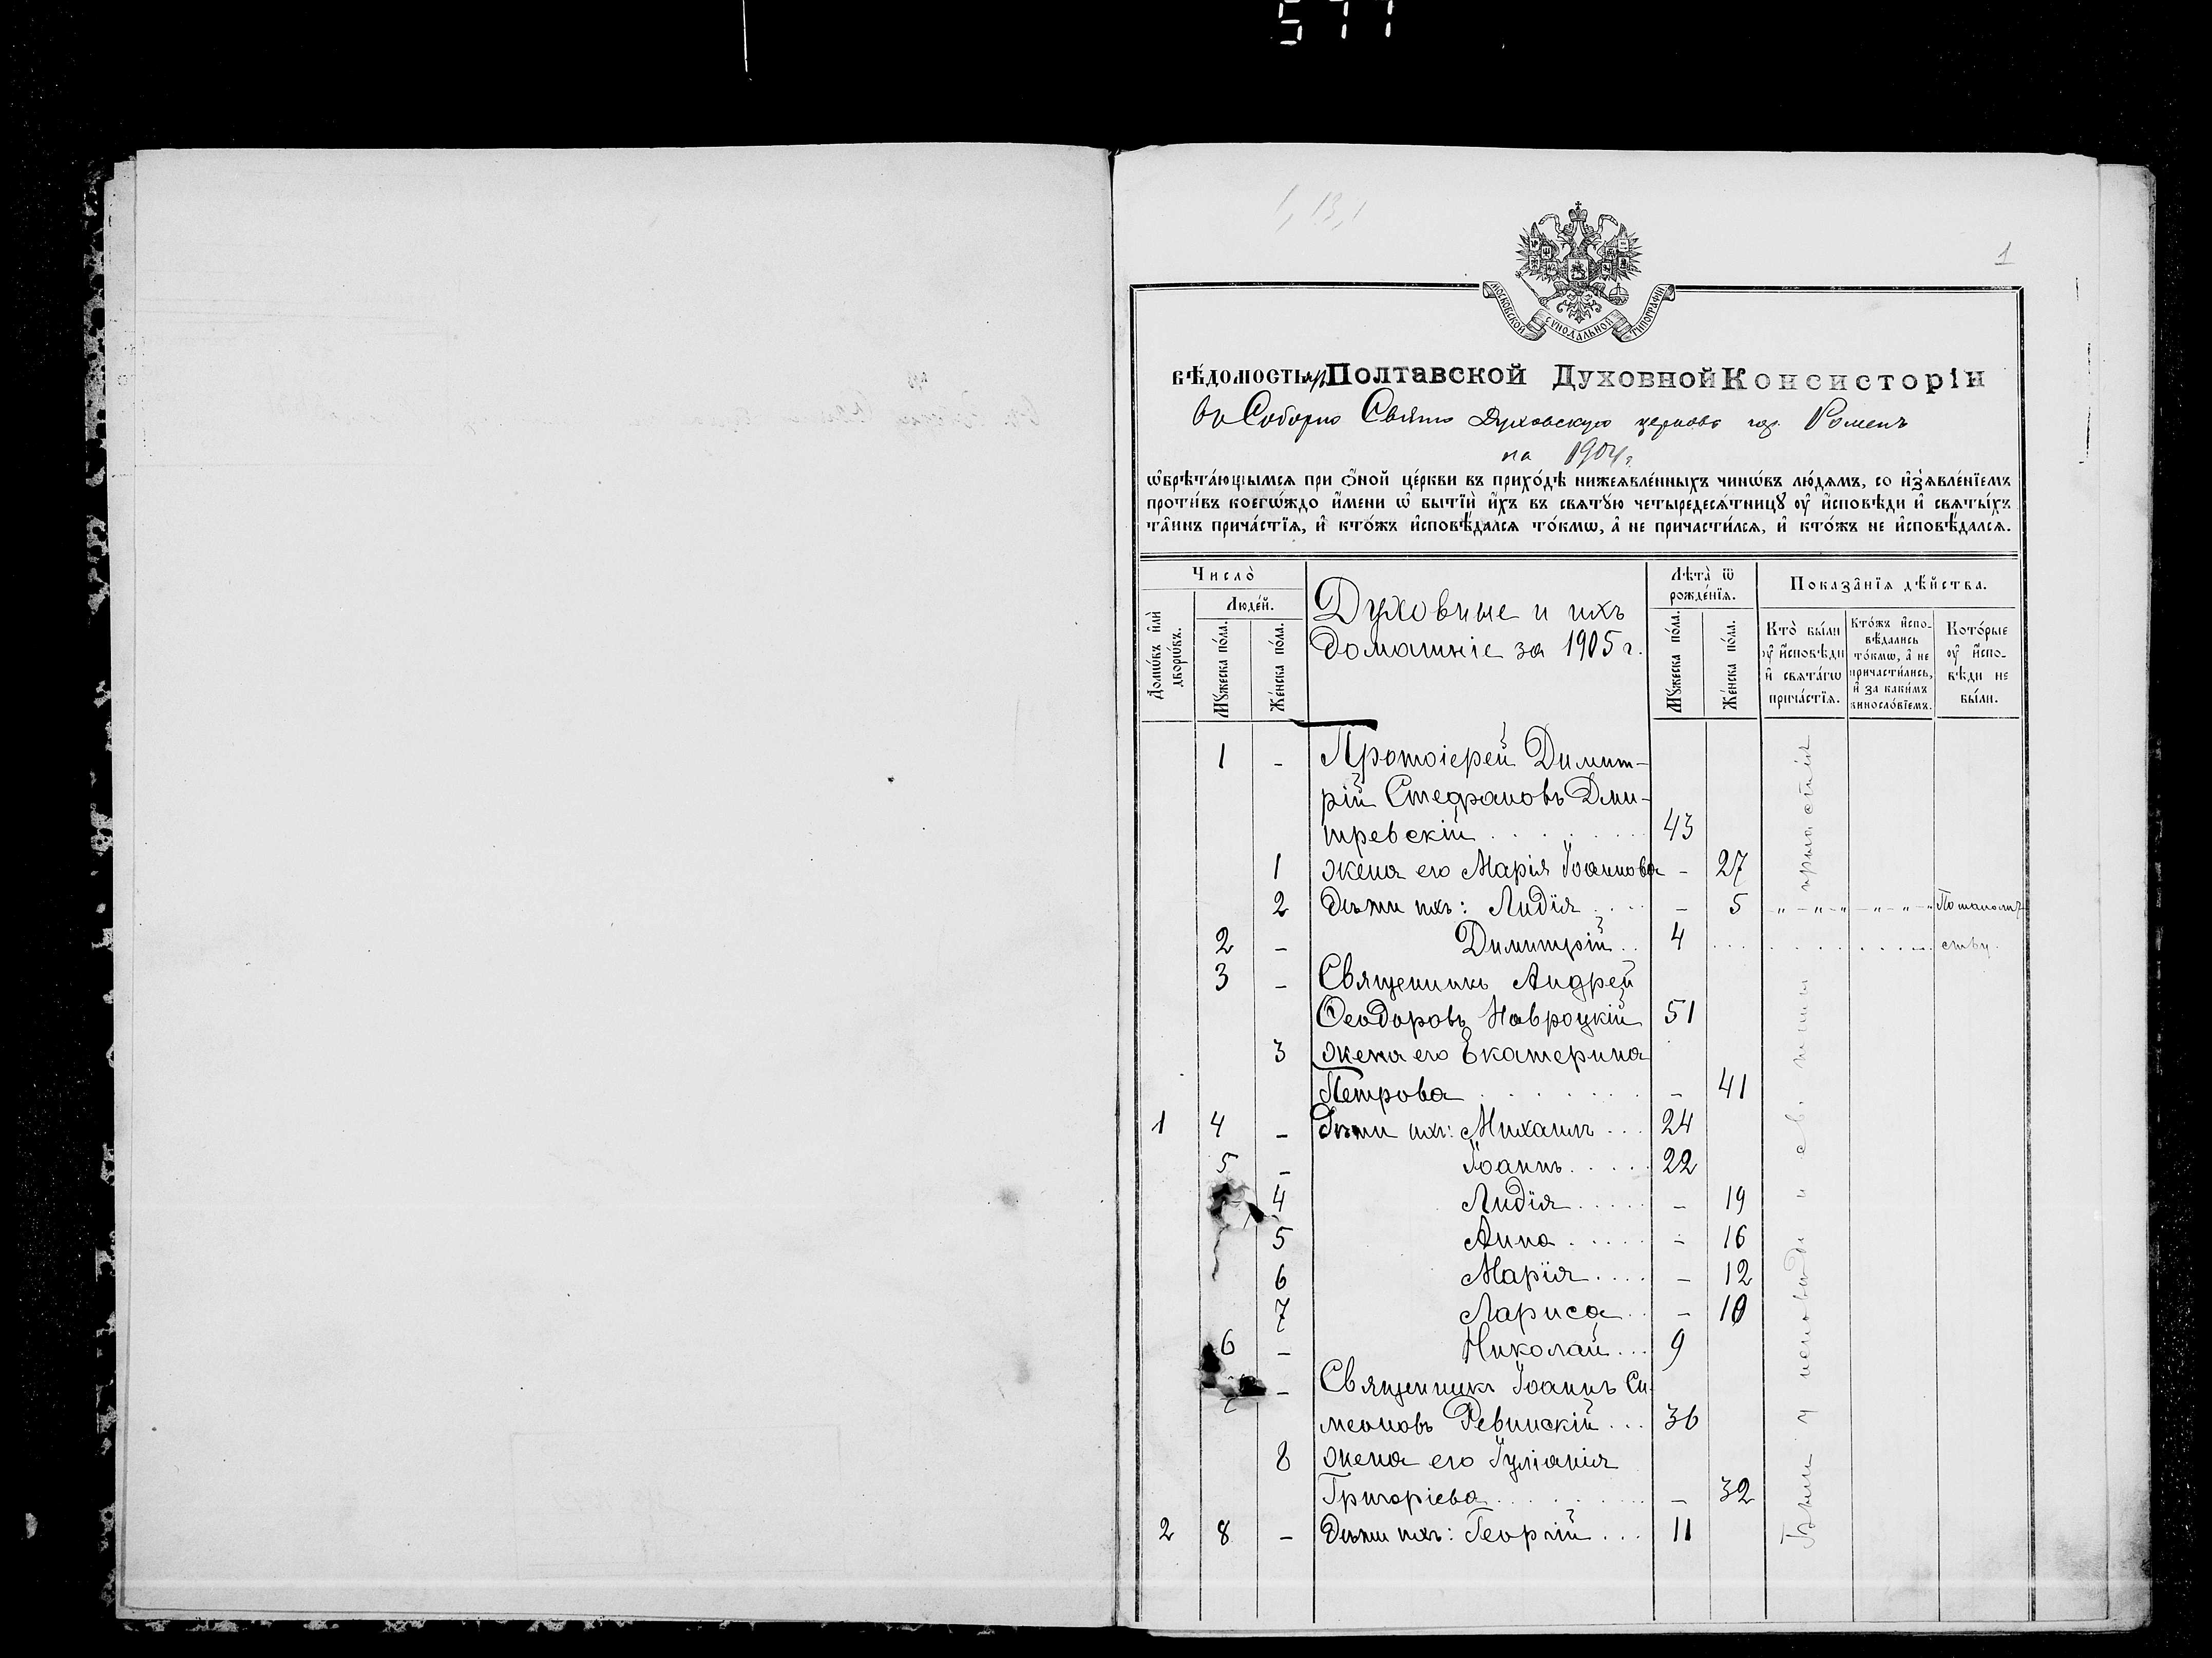 577
1
МОСКОВСКОЙ СѴНОДАЛЬНОЙ ТИПОГРАФІИ
ВѢДОМОСТЬ Полтавской Духовной Консисторіи
въ Соборно Свято Духовскую церковь гор. Роменъ
на 1904 г.
ѡ҆брѣта́ющымсѧ при ѻ҆́ной це́ркви въ прихо́дѣ нижеѧвле́нныхъ чинѡ́въ лю́дѧмъ, со и҆зъѧвле́нїемъ
проти́въ коегѡ́ждо и҆́мени ѡ҆ бытїѝ и҆́хъ въ свѧтꙋ́ю четыредесѧ́тницꙋ ᲂу҆ и҆́сповѣди и҆ свѧты́хъ
та̑инъ прича́стїѧ, и҆ кто́жъ и҆сповѣ́далсѧ то́кмѡ, а҆ не причасти́лсѧ, и҆ кто́жъ не и҆сповѣ́далсѧ.
Число̀
Люде́й.
Домѡ́въ и҆лѝ дворѡ́въ.
Мꙋ́жеска по́ла.
Же́нска по́ла.
Духовные и ихъ
домашніе за 1905 г.
Лѣта̀ ѿ рожде́нїѧ.
Мꙋ́жеска по́ла.
Же́нска по́ла.
Показа̑нїѧ дѣ́йства.
Кто̀ бы́ли ᲂу҆ и҆́сповѣди и҆ свѧта́гѡ прича́стїѧ.
Кто́жъ и҆спо-вѣ́дались то́кмѡ, а҆ не причасти́лись, и҆ за каки́мъ винносло́вїемъ.
Кото́рые ᲂу҆ и҆́спо-вѣди не бы́ли.
1 - Протоіерей Димит-
рій Стефановъ Дми-
тревскій 43
1 жена его Марія Іоаннова - 27
2 Дѣти ихъ: Лидія - 5 По малолѣт-
2 - Димитрій 4 ству.
3 - Священникъ Андрей
Ѳеодоровъ Навроцкій 51
3 жена его Екатерина
Петрова - 41
1 4 - Дѣти ихъ: Михаилъ 24
5 - Іоаннъ 22
4 Лидія - 19
5 Анна - 16
6 Марія - 12
7 Лариса - 10
6 - Николай 9
- Священникъ Іоаннъ Си-
меоновъ Ревинскій 36
8 жена его Іуліанія
Григоріева - 32
2 8 - Дѣти ихъ: Георгій 11
Были у исповѣди и св. причастія